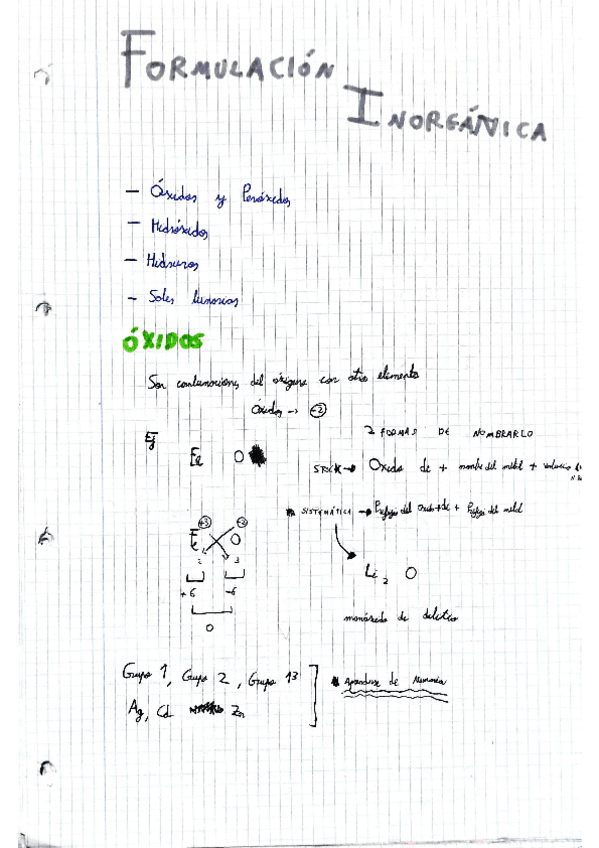 FORMULACIÓN
INORGÁNICA
- Óxidos y Peróxidos
- Hidróxidos
- Hidruros
- Sales binarias
ÓXIDOS
Son combinaciones del oxígeno con otro elemento
Óxidos -> -2
Ej
Fe O
2 FORMAS DE NOMBRARLO
STOCK -> Oxido de + nombre del metal + valencia
SISTEMÁTICA -> Prefijo del Oxido + de + Prefijo del metal
+3 -2
Fe O
2 3
+6 -6
0
Li2 O
monóxido de dilitio
Grupo 1, Grupo 2, Grupo 13
Ag, Cd Zn
Aprenderse de Memoria